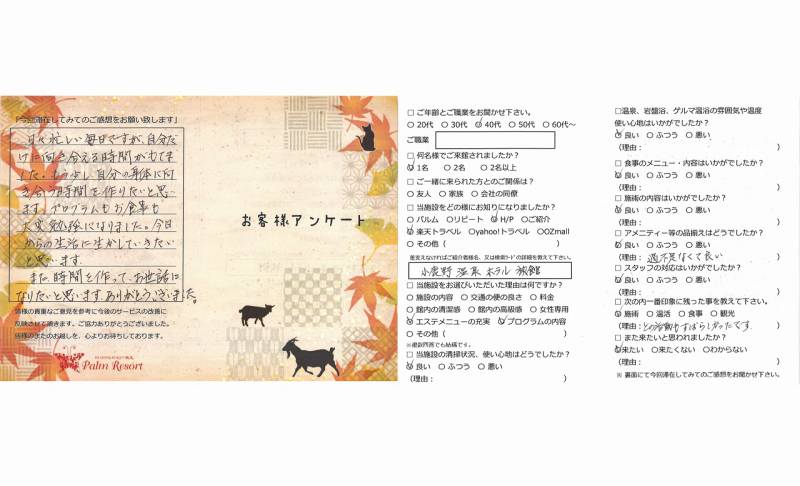 「今回滞在してみてのご感想をお願い致します」
日々忙しい毎日ですが、自分だ
けに向き合える時間がもてま
した。もう少し自分の身体に向
き合う時間を作りたいと思い
ます。プログラムもお食事も
大変勉強になりました。今日
からの生活に生かしていきたい
と思います。
また、時間を作って、お世話に
なりたいと思います。ありがとうございました。
皆様の貴重なご意見を参考に今後のサービスの改善に
反映させて頂きます。ご協力ありがとうございました。
皆様のまたのお越しを、心よりお待ちしております。
Palm Resort
お客様アンケート
□ ご年齢とご職業をお聞かせ下さい。
○ 20代 ○ 30代 ○ 40代 ○ 50代 ○ 60代～
ご職業
□ 何名様でご来館されましたか？
○ 1名 ○ 2名 ○ 2名以上
□ ご一緒に来られた方とのご関係は？
○ 友人 ○ 家族 ○ 会社の同僚
□ 当施設をどの様にお知りになりましたか？
○ パルム ○ リピート ○ H/P ○ ご紹介
○ 楽天トラベル ○ yahoo!トラベル ○ OZmall
○ その他（ ）
差支えなければご紹介者様名、又は検索ワードの詳細を教えて下さい。
小鹿野 温泉 ホテル 旅館
□ 当施設をお選びいただいた理由は何ですか？
○ 施設の内容 ○ 交通の便の良さ ○ 料金
○ 館内の清潔感 ○ 館内の高級感 ○ 女性専用
○ エステメニューの充実 ○ プログラムの内容
○ その他（ ）
※複数回答でも結構です。
□ 当施設の清掃状況、使い心地はどうでしたか？
○ 良い ○ ふつう ○ 悪い
（理由： ）
□ 温泉、岩盤浴、ゲルマ温浴の雰囲気や温度
使い心地はいかがでしたか？
○ 良い ○ ふつう ○ 悪い
（理由： ）
□ 食事のメニュー・内容はいかがでしたか？
○ 良い ○ ふつう ○ 悪い
□ 施術の内容はいかがでしたか？
○ 良い ○ ふつう ○ 悪い
□ アメニティー等の品揃えはどうでしたか？
○ 良い ○ ふつう ○ 悪い
（理由： 過不足なくて良い ）
□ スタッフの対応はいかがでしたか？
○ 良い ○ ふつう ○ 悪い
□ 次の内一番印象に残った事を教えて下さい。
○ 施術 ○ 温活 ○ 食事 ○ 観光
（理由： ）
□ また来たいと思われましたか？
○ 来たい ○ 来たくない ○ わからない
（理由： ）
※ 裏面にて今回滞在してみてのご感想をお聞かせ下さい。